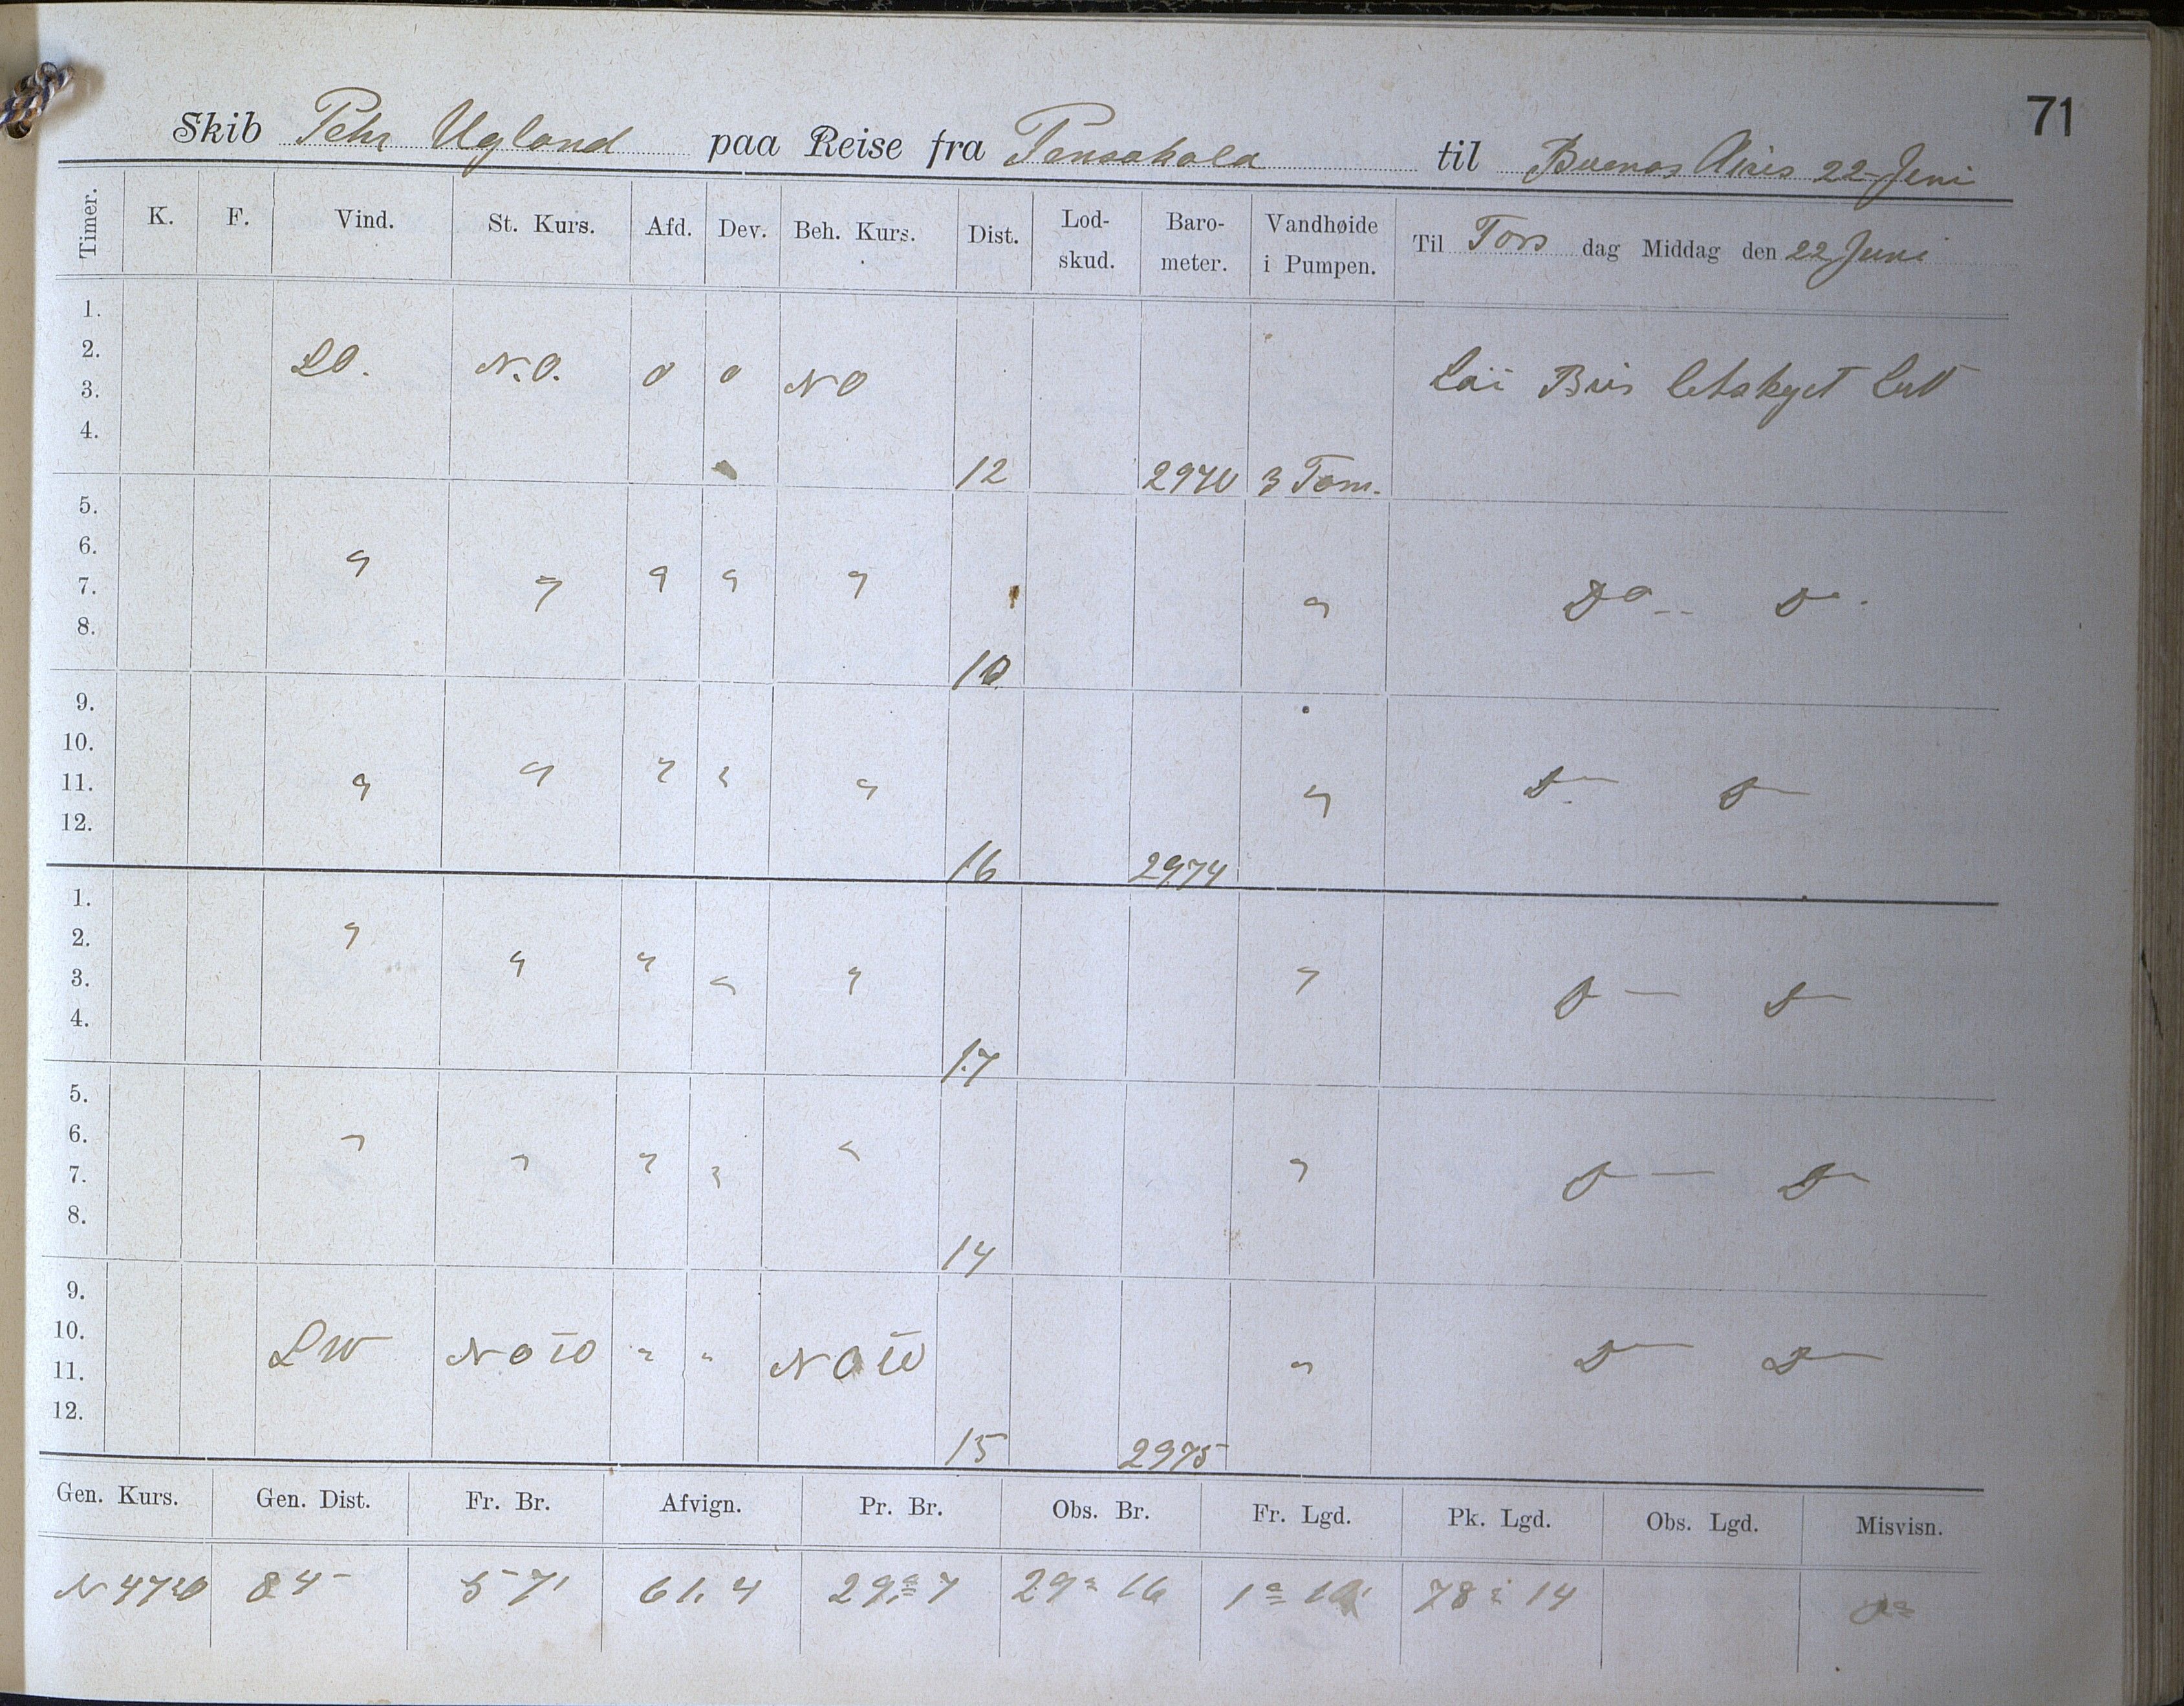 71
Skib Pehr Ugland paa Reise fra Pensakola til Buenos Aires 22 Juni
Timer. K. F. Vind. St. Kurs. Afd. Dev. Beh. Kurs. Dist. Lod-skud. Baro-meter. Vandhøide i Pumpen. Til Tors dag Middag den 22 Juni
1.
2. SO. N.O. 0 0 NO
3. Bris letskyet
4.
12 3 Tom.
5.
6. " " " " "
7. " Do Do
8.
10
9.
10. " " "
11. " " " D D
12.
16 2974
1.
2. "
3. " " " " " D D
4.
17
5.
6. " "
7. " " " " D D
8.
14
9.
10. SW NO " " NO
11. " D D
12.
15 2975
Gen. Kurs. Gen. Dist. Fr. Br. Afvign. Pr. Br. Obs. Br. Fr. Lgd. Pk. Lgd. Obs. Lgd. Misvisn.
N 47 O 84 57' 61,4 29° 7 29° 16 78° 14